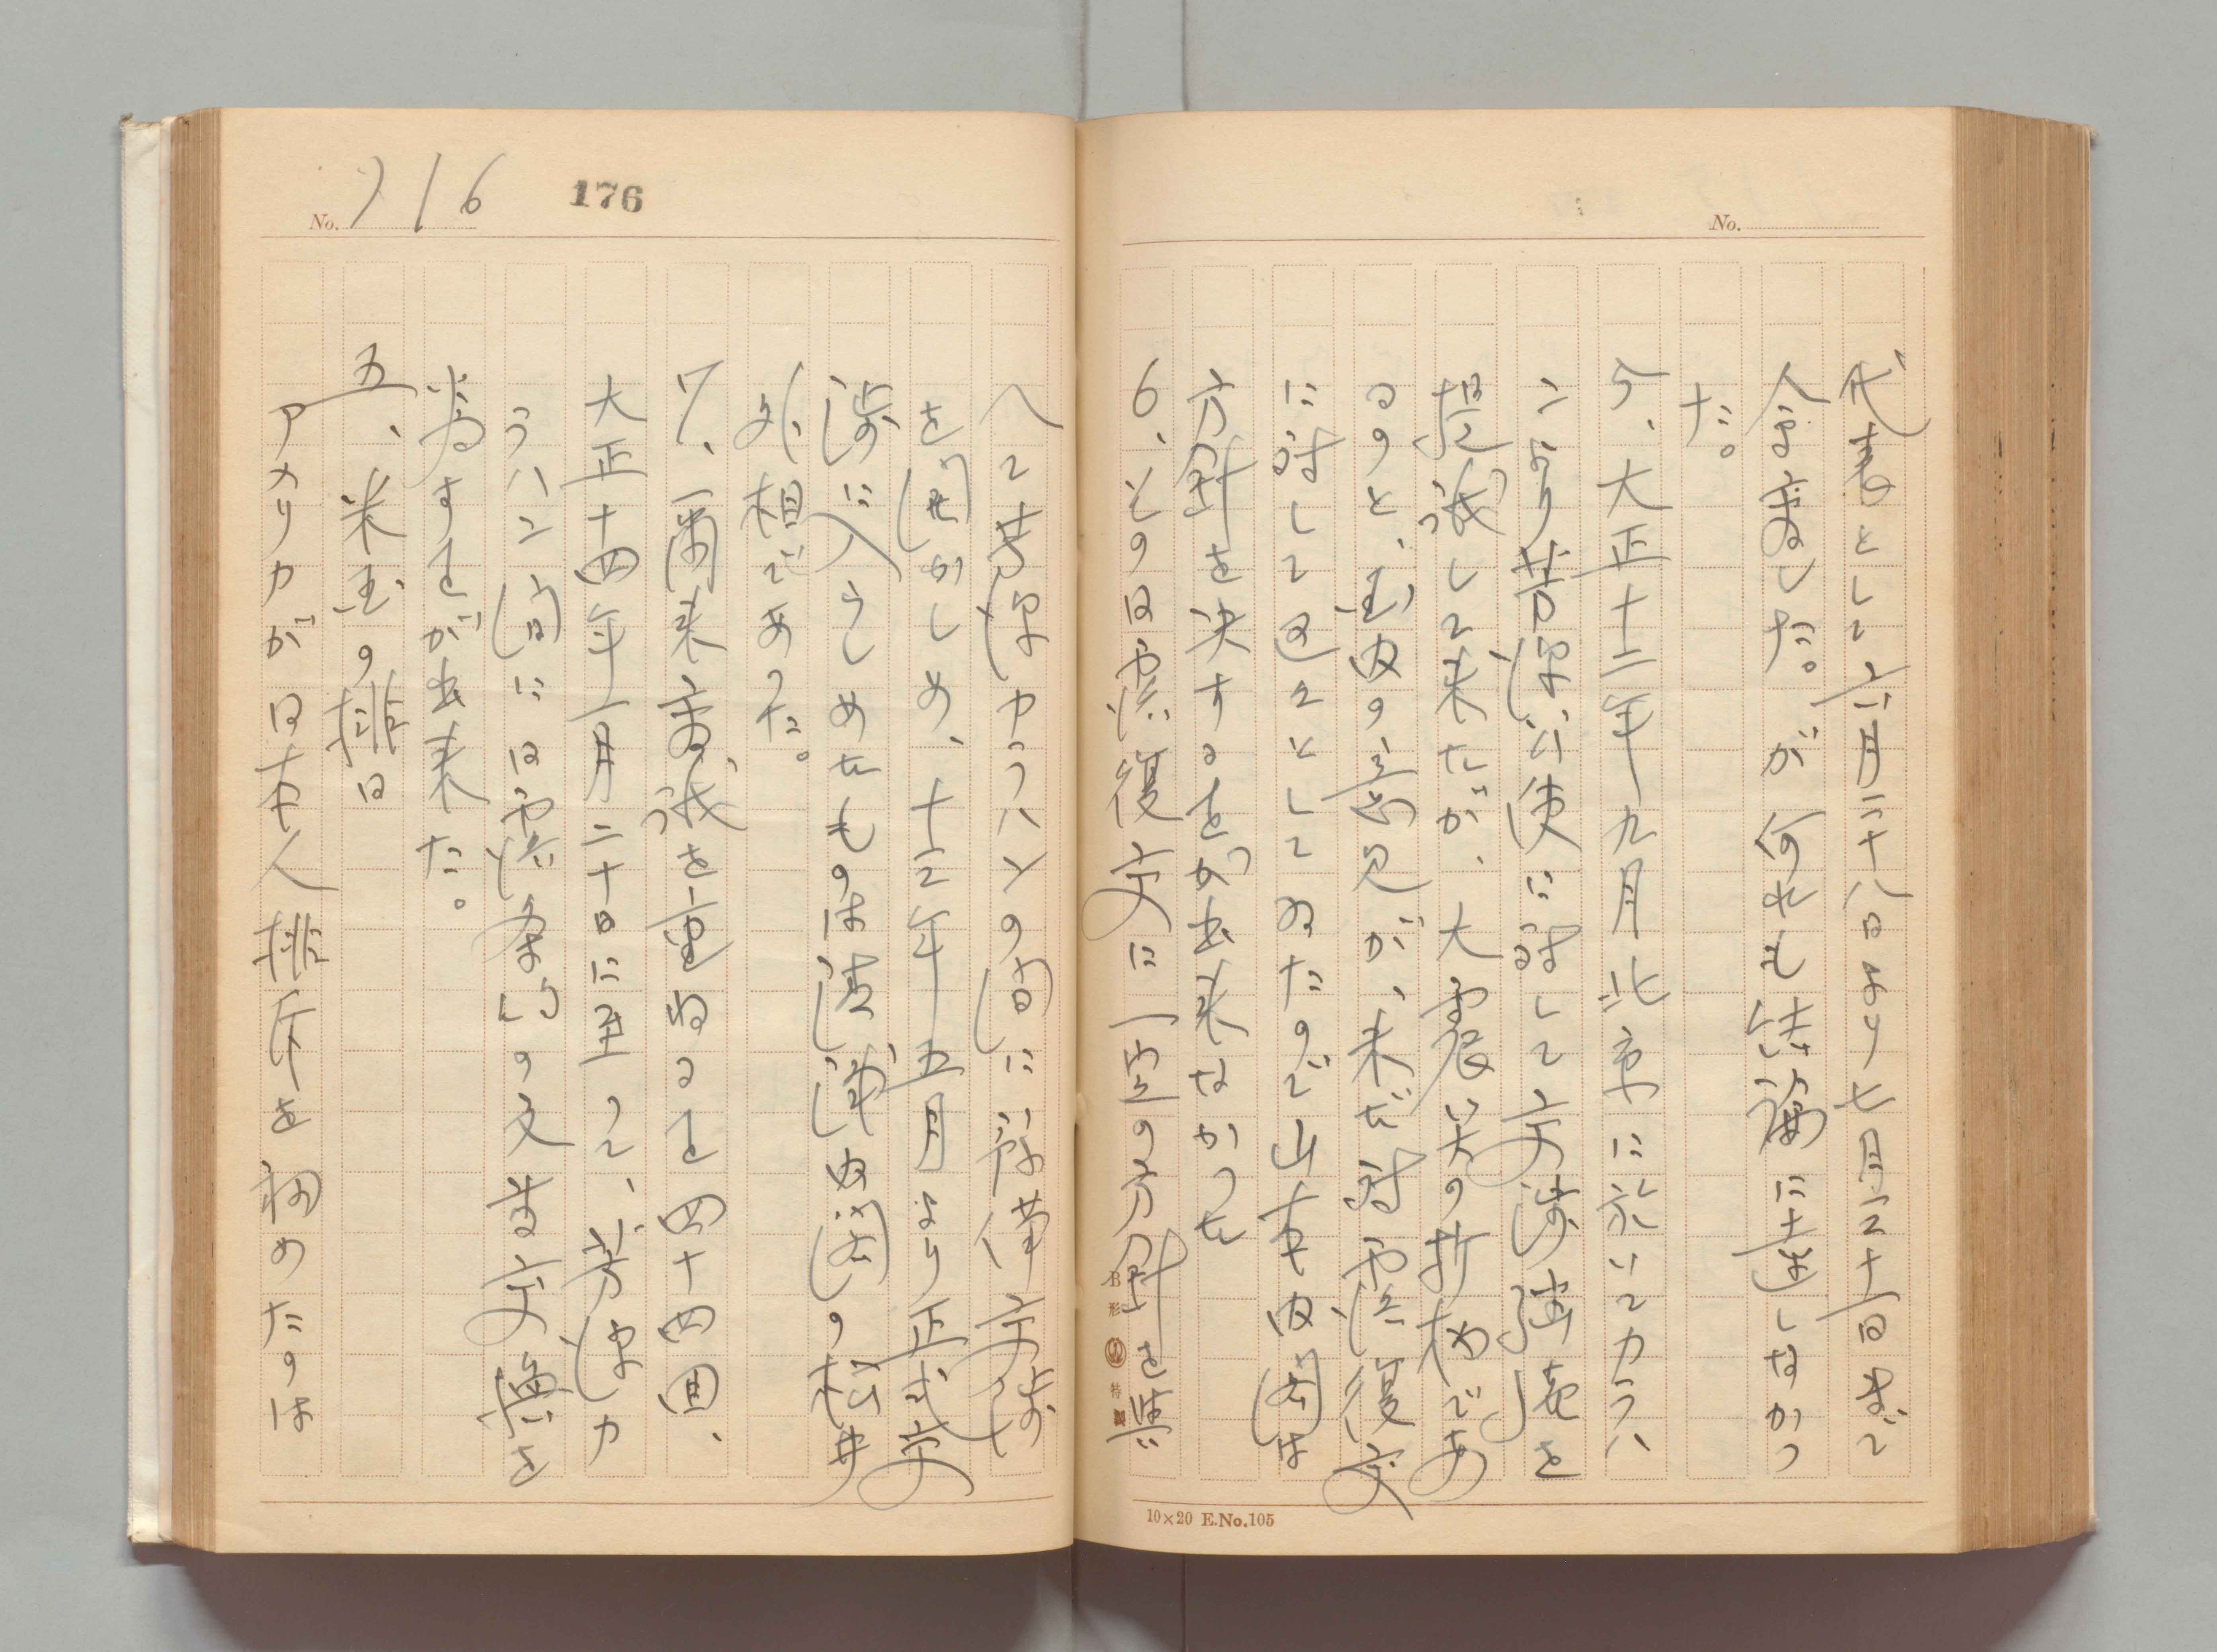 No.
代表として六月二十八日より七月三十一日まで
会商した。が何れも結論に達しなかつ
た。
5、大正十二年九月北京に於いてカラハ
ンより芳澤公使に対して交渉開始を
提議して来たが、大震災の折柄であ
るのと、国内の意見が、未だ対露復交
に対して区々としてゐたので山本内閣は
方針を決することが出来なかつた
6、その日露復交に一定の方針を与
10×20 E.No.105
B形 特製
No. 716
176
へて芳澤カラハンの間に予備交渉
を開かしめ、十三年五月より正式交
渉に入らしめたものは清浦内閣の松井
外相であった。
7、爾来商議を重ねること四十四回、
大正十四年一月二十日に至って、芳澤カ
ラハン間に日露条約の文書交換を
為すことが出来た。
五、米国の排日
アメリカが日本人排斥を初めたのは